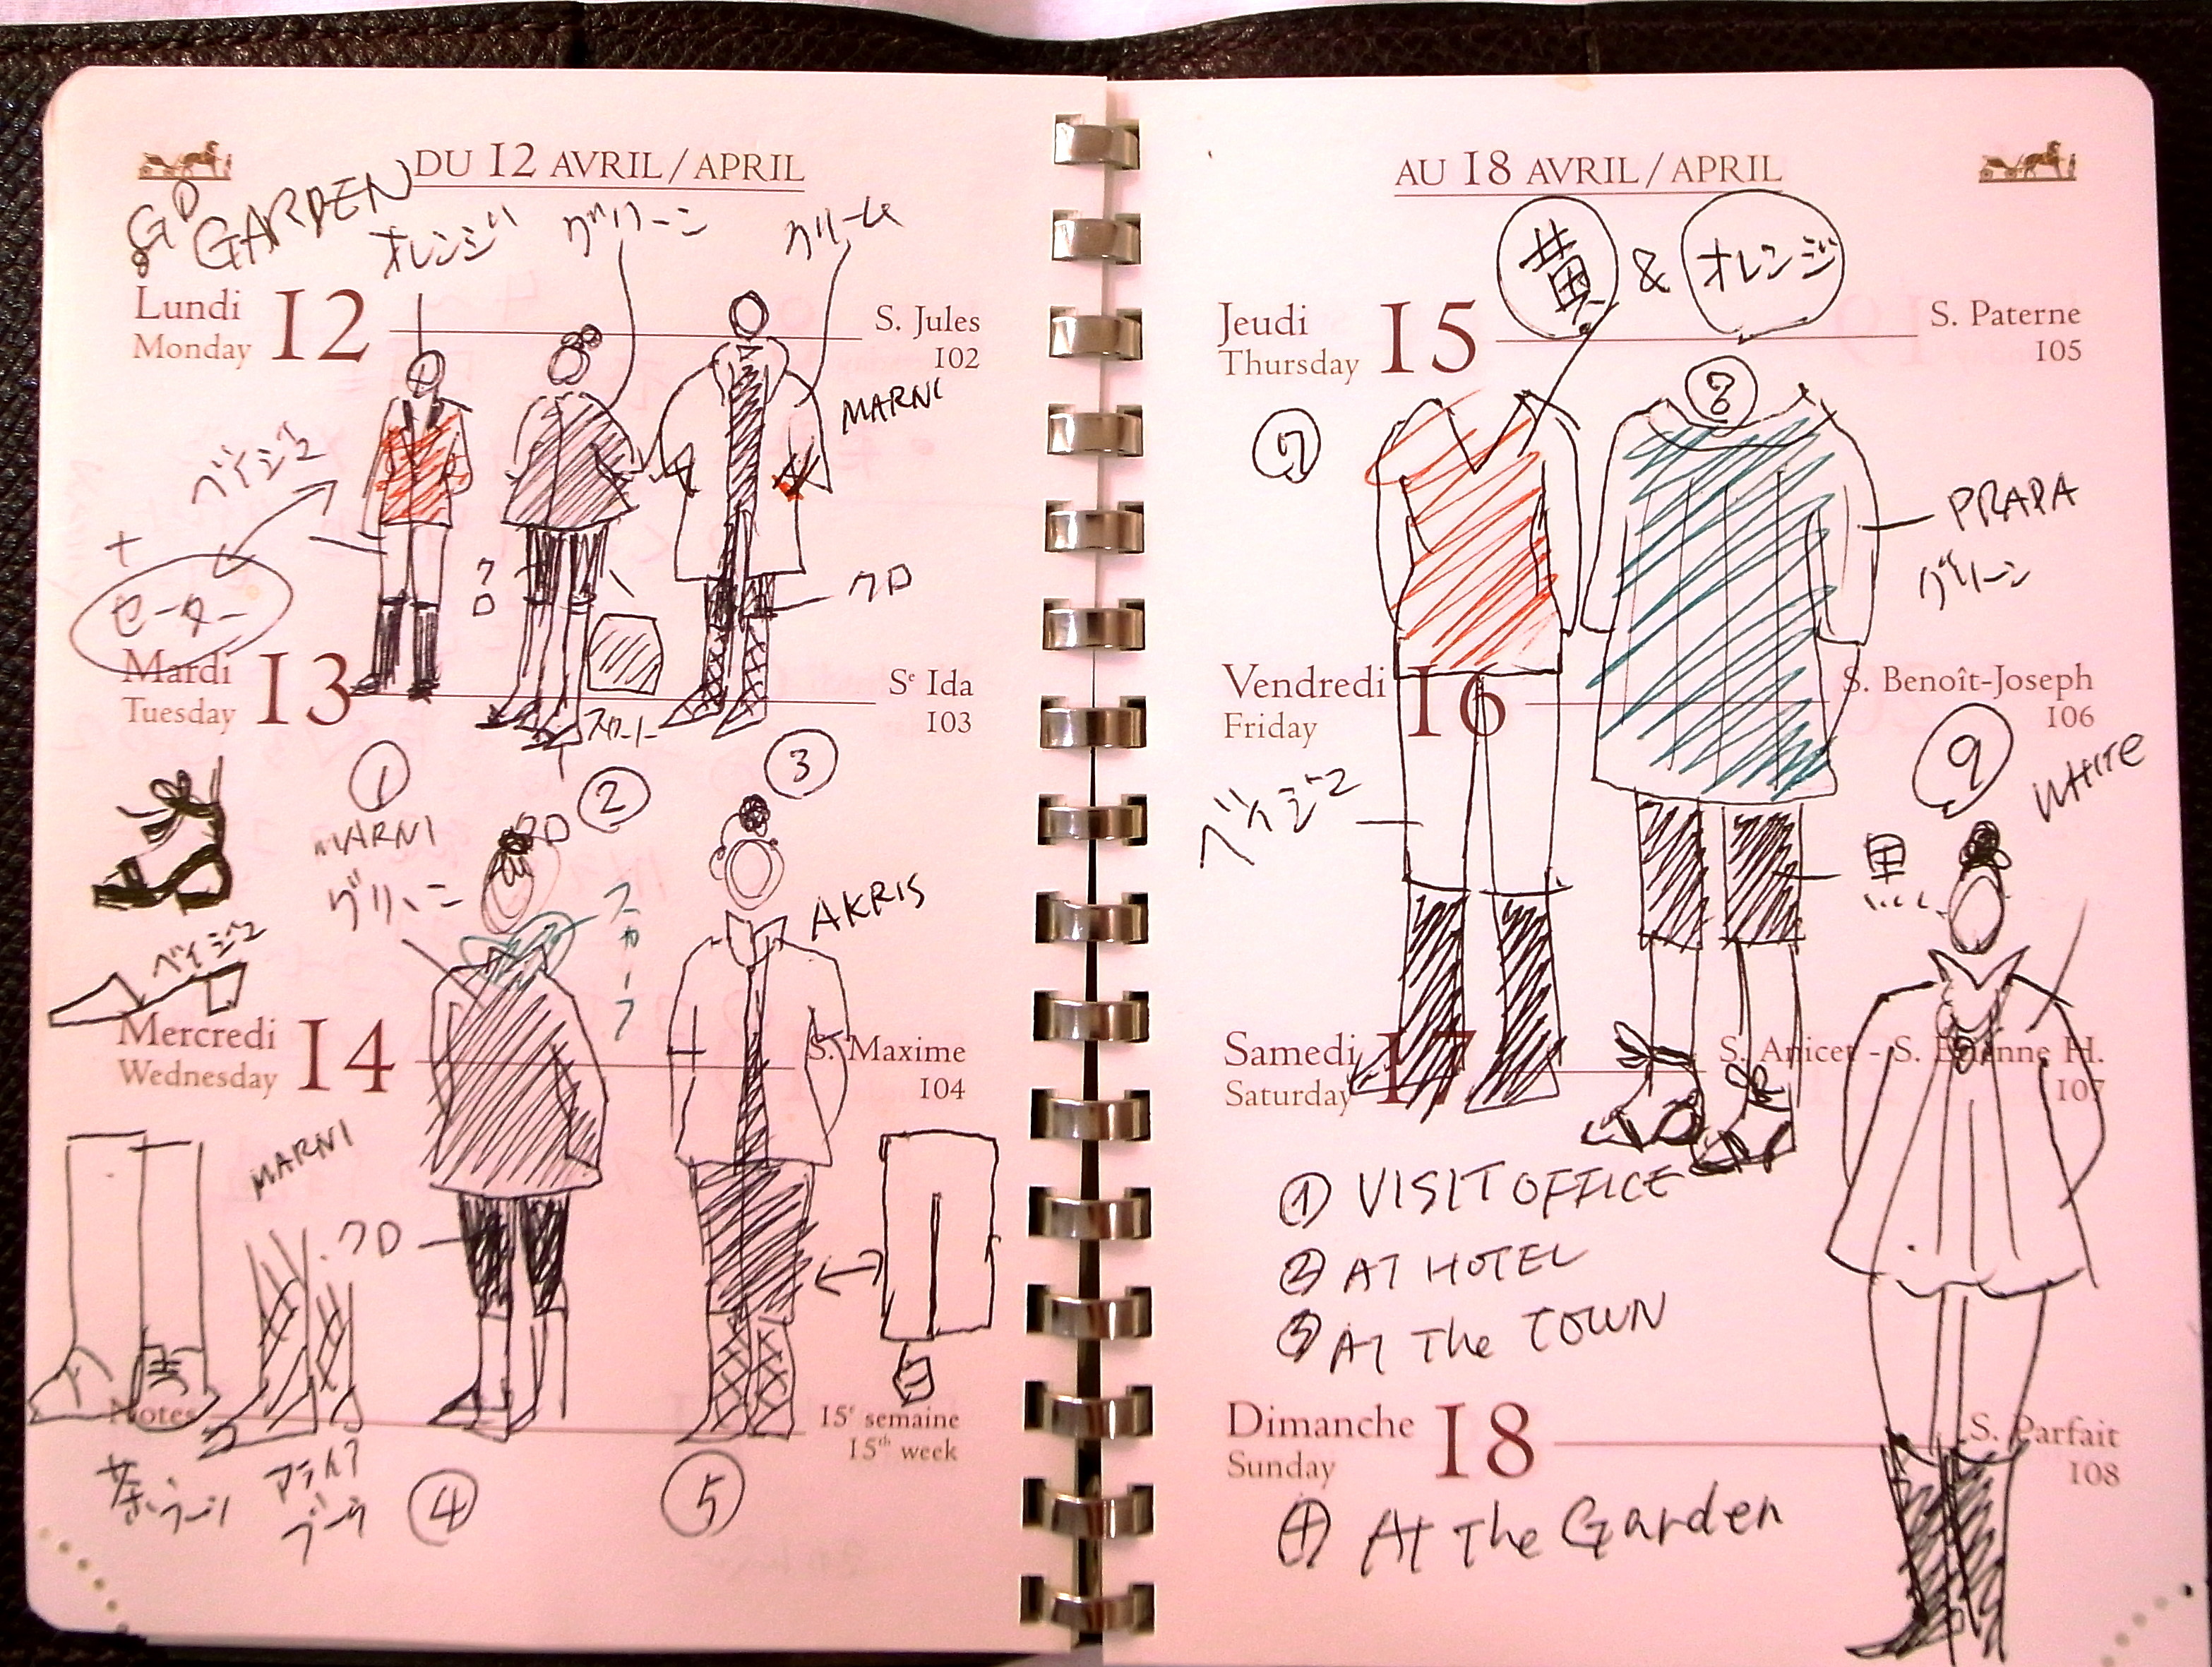 DU 12 AVRIL / APRIL
GARDEN
オレンジ
グリーン
クリーム
Lundi
Monday
12
S. Jules
102
MARNI
ベイジュ
+
セーター
クロ
クロ
Mardi
Tuesday
13
Sᵉ Ida
103
スカート
①
②
③
MARNI
グリーン
クロ
スカーフ
AKRIS
ベイジュ
Mercredi
Wednesday
14
S. Maxime
104
MARNI
クロ
白
Notes
15ᵉ semaine
15ᵗʰ week
茶ブーツ
アライア
ブーツ
④
⑤
AU 18 AVRIL / APRIL
黄 & オレンジ
Jeudi
Thursday
15
S. Paterne
105
⑦
⑧
PRADA
グリーン
Vendredi
Friday
16
S. Benoît-Joseph
106
⑨
WHITE
ベイジュ
黒
Samedi
Saturday
17
S. Anicet - S. Etienne H.
107
① VISIT OFFICE
② AT HOTEL
③ AT The TOWN
Dimanche
Sunday
18
S. Parfait
108
④ At The Garden